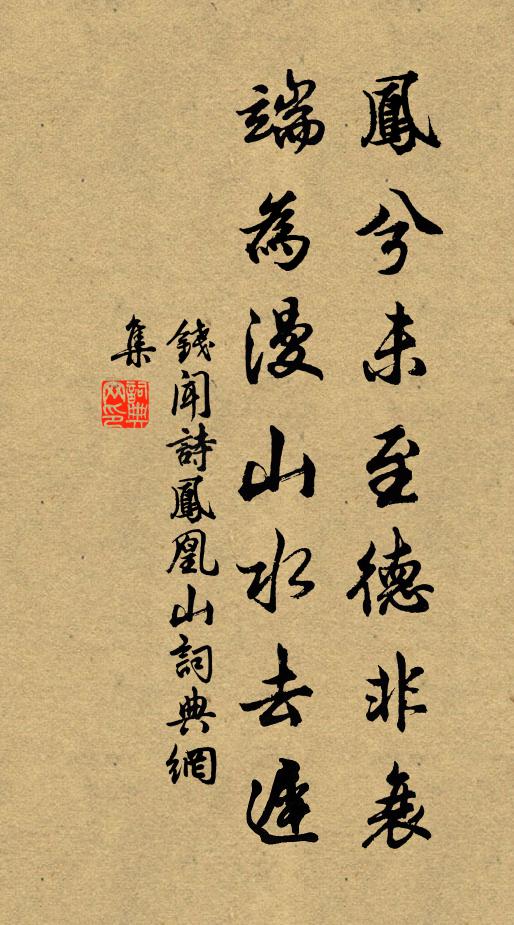 鳳兮未至德非衰
端為漫山水去遲
錢聞詩鳳凰山詞典網
集
詞典
網印